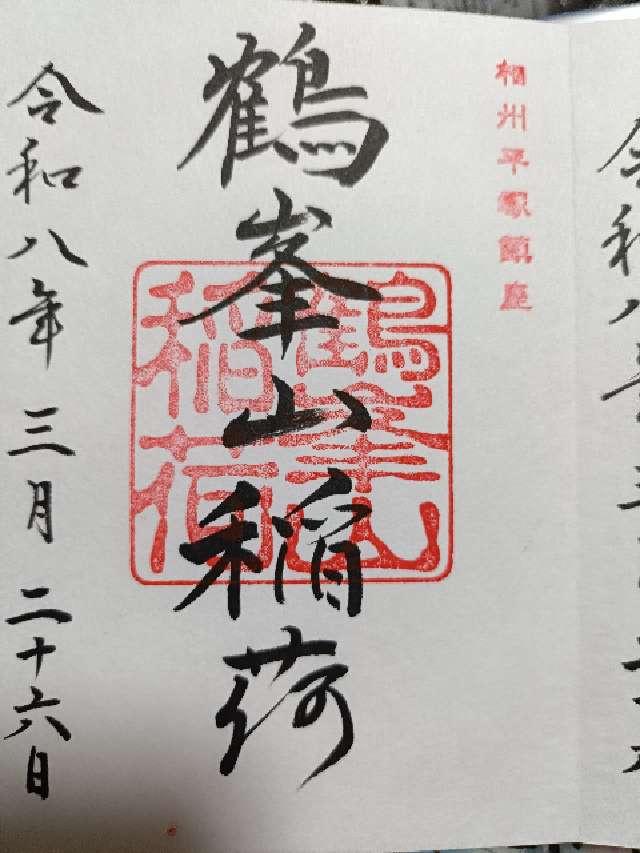 相州平塚鎮座
鶴峯山稲荷
鶴峯山
稲荷
令和八年三月二十六日